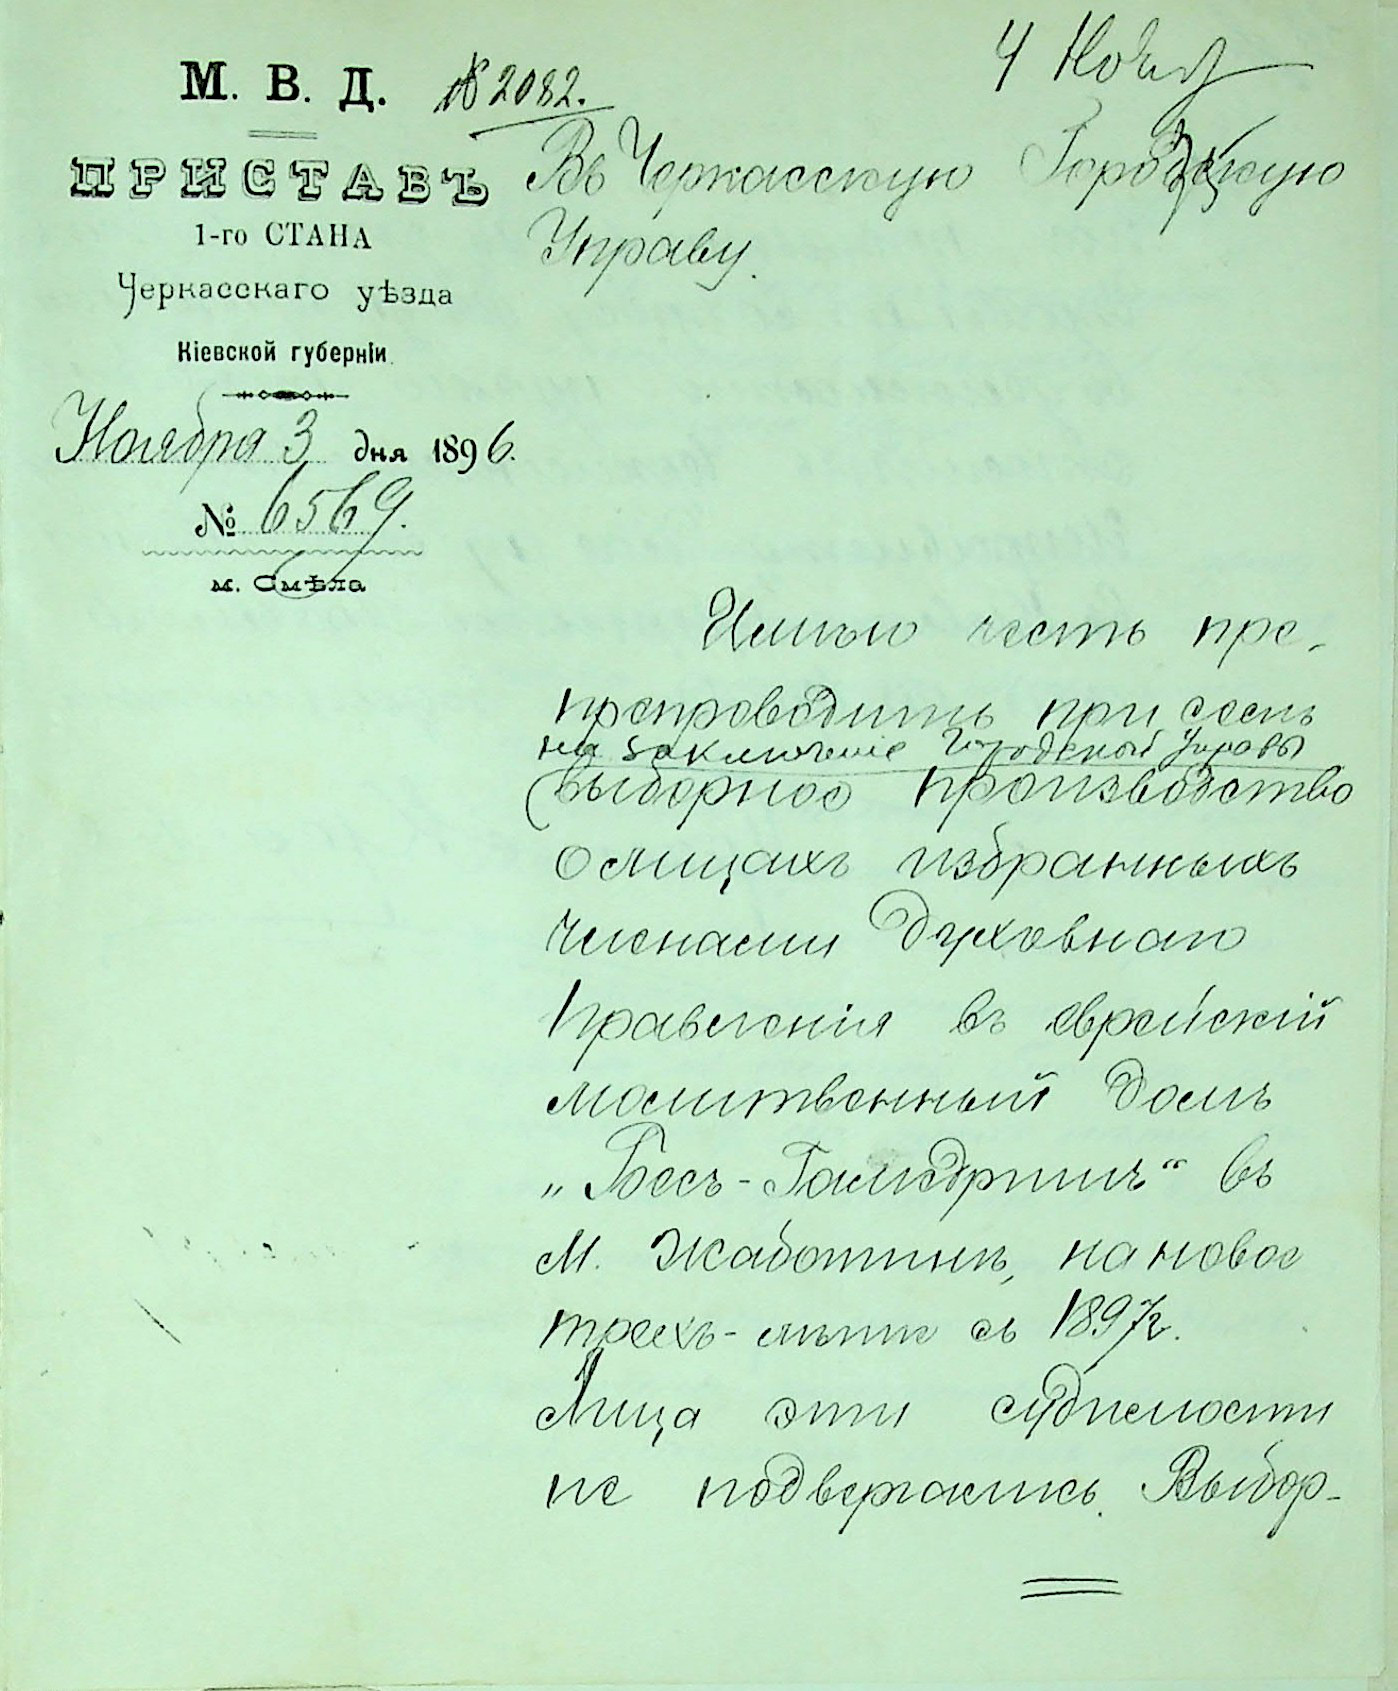 М. В. Д.
№ 2082.
4 Нояб
ПРИСТАВЪ
1-го СТАНА
Черкасскаго уѣзда
Кіевской губерніи
Ноября 3 дня 1896.
№ 6569.
м. Смѣла
Въ Черкасскую Городскую
Управу.
Имѣю честь пре-
препроводить при семъ
на заключеніе Городской Управы
выборное производство
о лицахъ избранныхъ
членами духовнаго
Правленія въ еврейскій
молитвенный домъ
„Бесъ-Гамедришъ“ въ
М. Жаботинѣ, на новое
трехъ-лѣтіе съ 1897 г.
Лица эти судимости
не подвергались. Выбор-